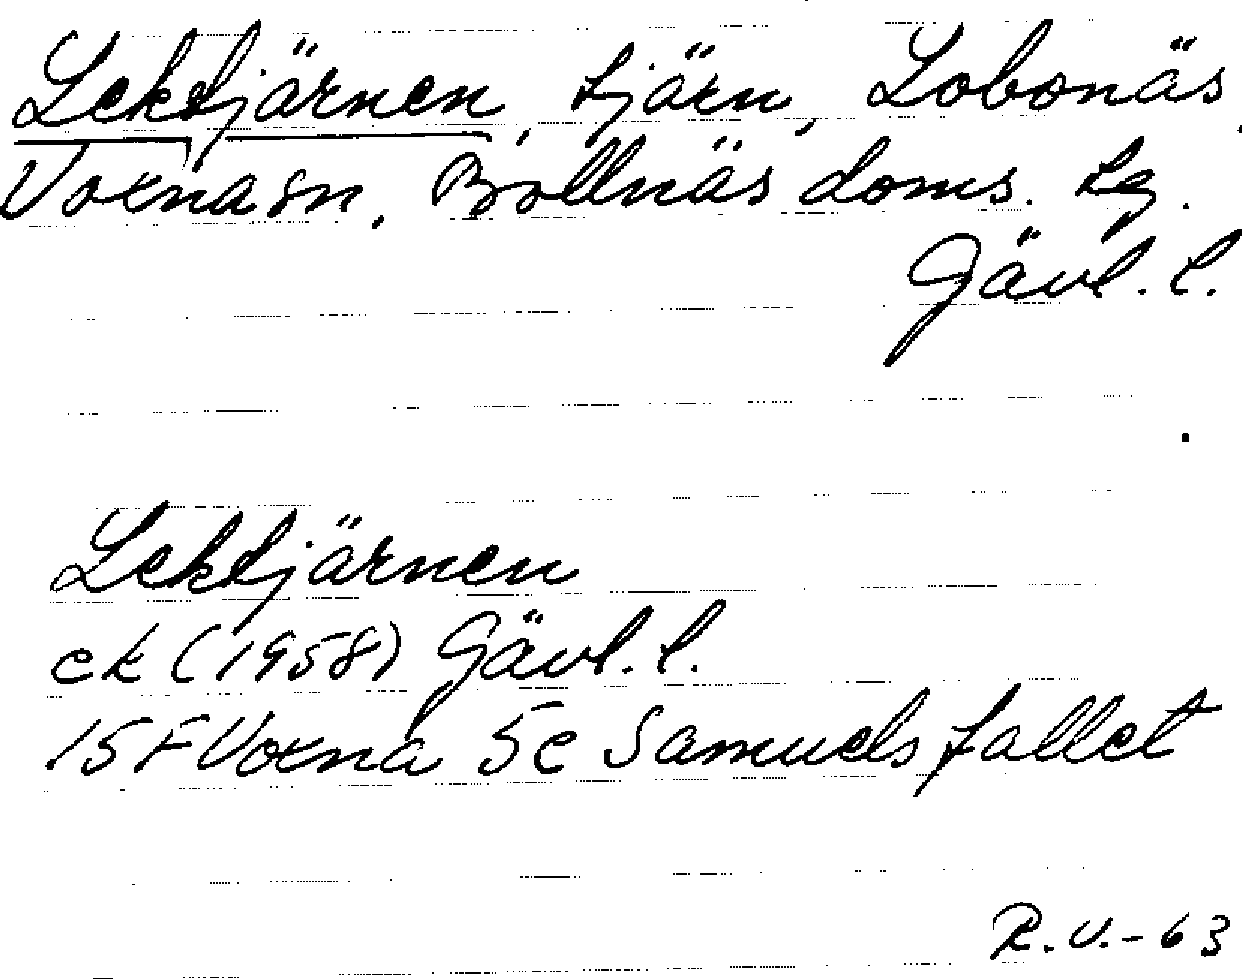 Lektjärnen, tjärn, Lobonäs,
Voxna sn, Bollnäs doms. tg.
Gävl. l.
Lektjärnen
ek (1958) Gävl. l.
15F Voxna 5e Samuelsfallet
R.V.-63